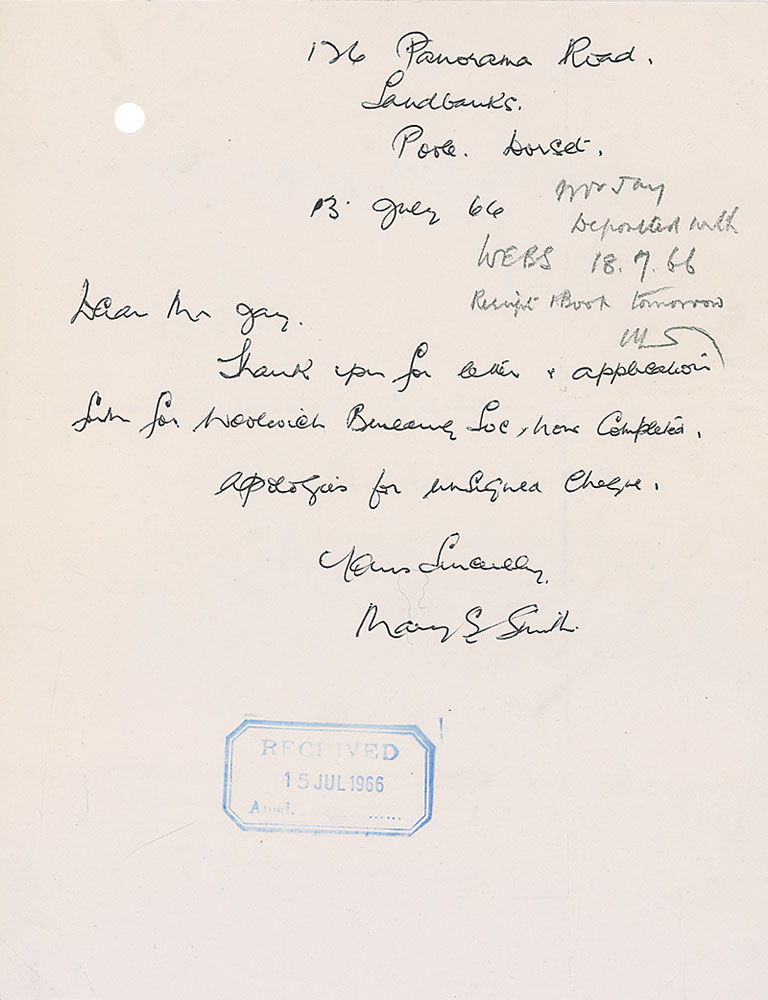 126 Panorama Road.
Sandbanks.
Poole. Dorset.
13. July 66
Mr Jay
Deposited with
WEBS 18.7.66
Receipt + Book tomorrow
MS
Dear Mr Jay.
Thank you for letter & application
form for Woolwich Soc, now Completed.
Apologies for unsigned Cheque.
Yours Sincerely,
Mary S Smith.
RECEIVED
15 JUL 1966
Ansd. ......